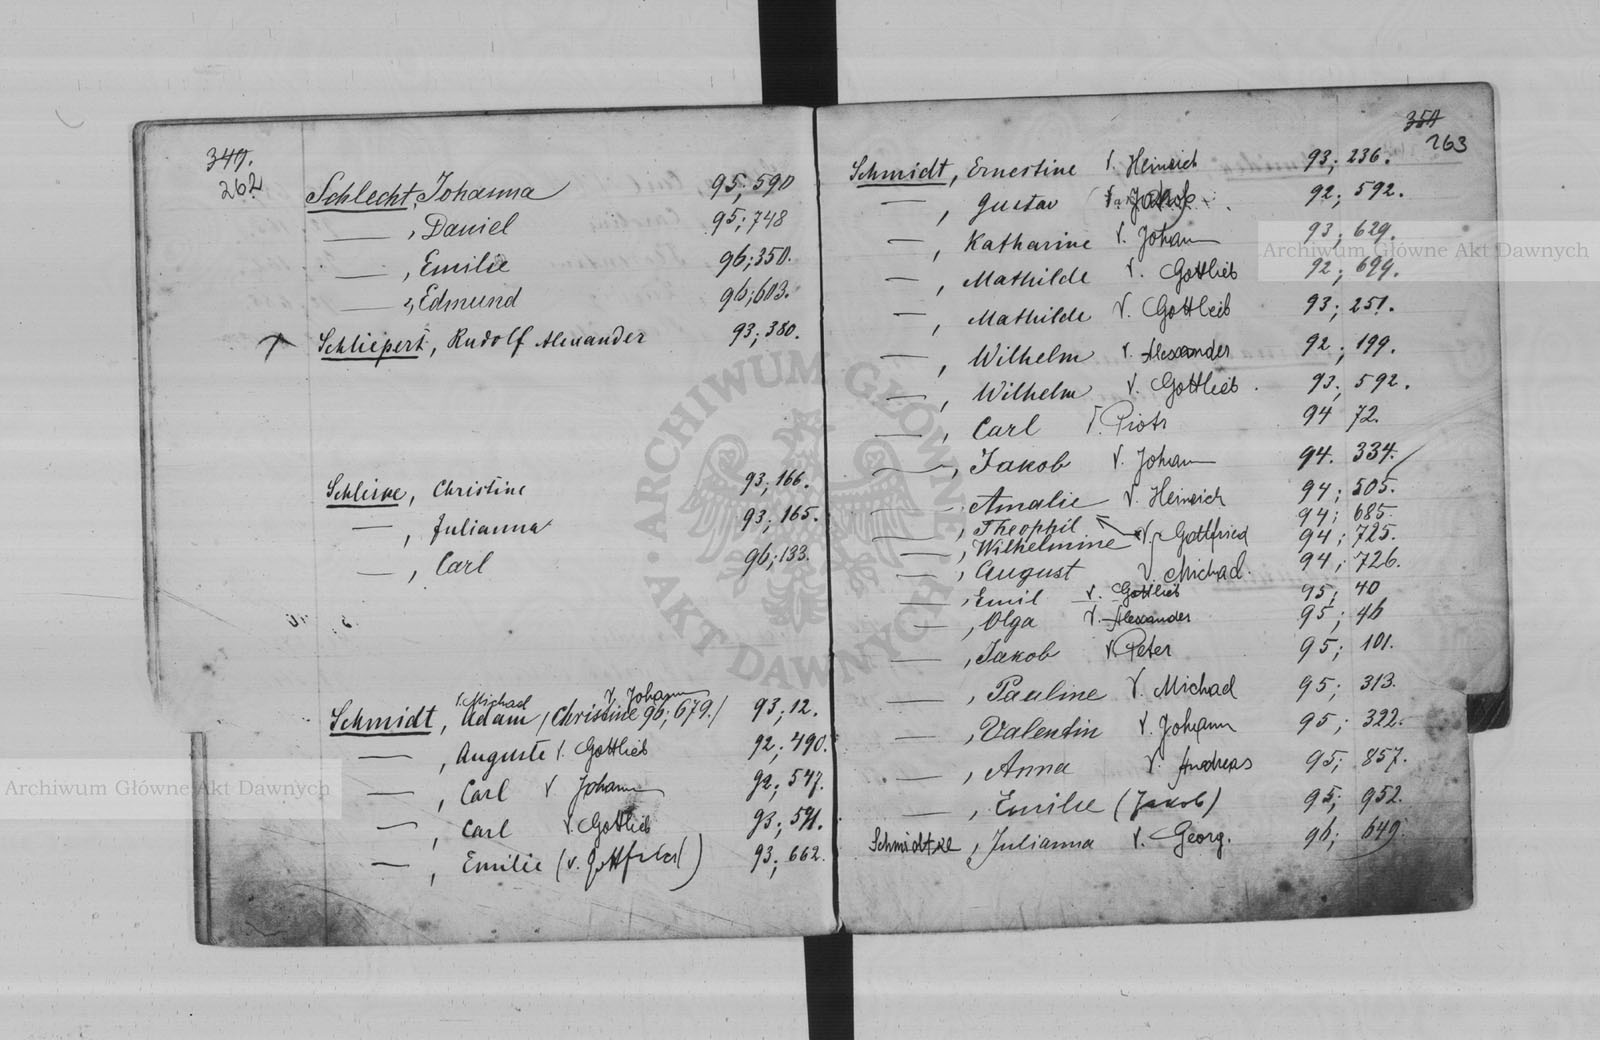 349.
262
Schlecht, Johanna 95; 590
— , Daniel 95; 748
— , Emilie 96; 350.
— , Edmund 96; 603.
Schliepert, Rudolf Alexander 93; 380.
Schleike, Christine 93; 166.
— , Julianna 93; 165.
— , Carl 96; 133.
v. Michael v. Johann
Schmidt, Adam / Christine 96; 679. / 93; 12.
— , Auguste v. Gottlieb 92; 490.
— , Carl v. Johann 92; 547.
— , Carl v. Gottlieb 93; 591.
— , Emilie (v. Gottfried) 93; 662.
263
Schmidt, Ernestine v. Heinrich 93; 236.
— , Gustav (v. Jakob) 92; 592.
— , Katharine v. Johann 93; 629.
— , Mathilde v. Gottlieb 92; 699.
— , Mathilde v. Gottlieb 93; 251.
— , Wilhelm v. Alexander 92; 199.
— , Wilhelm v. Gottlieb 93; 592.
— , Carl v. Piotr 94 72.
— , Jakob v. Johann 94. 334.
— Amalie v. Heinrich 94; 505.
— , Theophil 94; 685.
— , Wilhelmine v. Gottfried 94; 725.
— , August v. Michael. 94; 726.
— , Emil v. Gottlieb 95; 40
— , Olga v. Alexander 95; 46
— , Jakob v. Peter 95; 101.
— , Pauline v. Michael 95; 313.
— , Valentin v. Johann 95; 322.
— , Anna v. Andreas 95; 857.
— , Emilie (Jakob) 95; 952.
Schmidtke, Julianna v. Georg. 96; 649.
ARCHIWUM GŁÓWNE AKT DAWNYCH
Archiwum Główne Akt Dawnych
Archiwum Główne Akt Dawnych